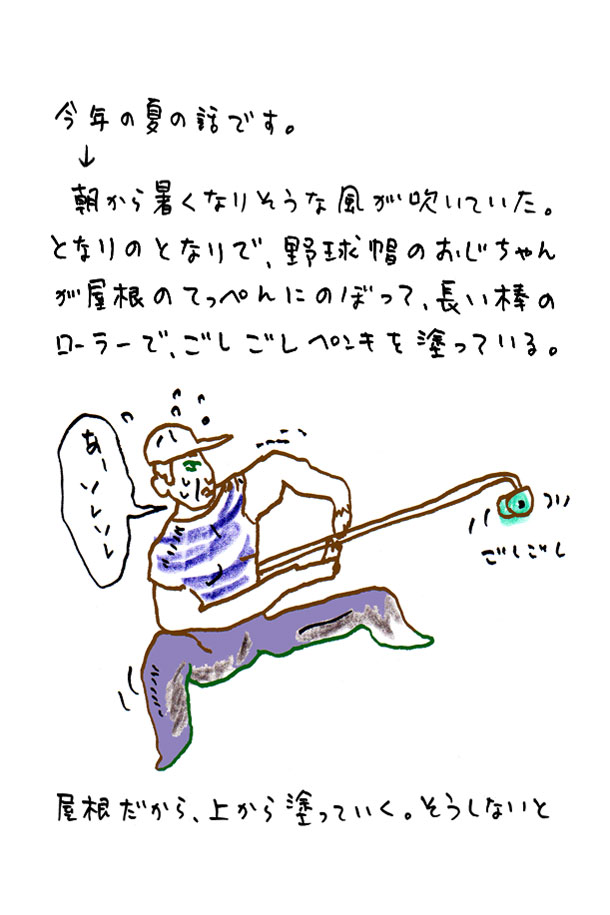 今年の夏の話です。
↓
朝から暑くなりそうな風が吹いていた。
となりのとなりで、野球帽のおじちゃん
が屋根のてっぺんにのぼって、長い棒の
ローラーで、ごしごしペンキを塗っている。
あーソレソレ
ごしごし
屋根だから、上から塗っていく。そうしないと